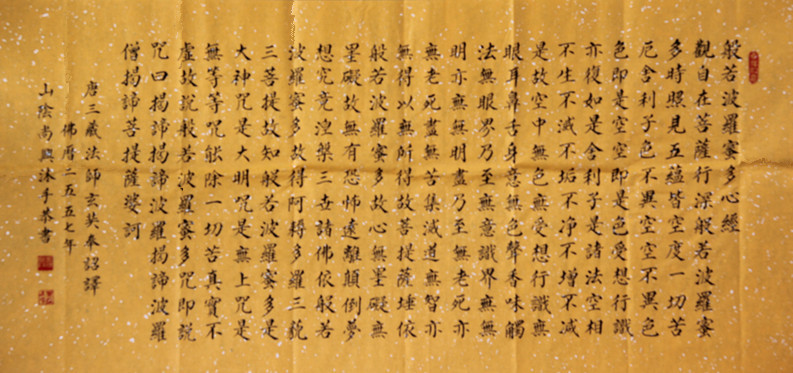 般若波羅蜜多心經
觀自在菩薩行深般若波羅蜜
多時照見五蘊皆空度一切苦
厄舍利子色不異空空不異色
色即是空空即是色受想行識
亦復如是舍利子是諸法空相
不生不滅不垢不净不增不减
是故空中無色無受想行識無
眼耳鼻舌身意無色聲香味觸
法無眼界乃至無意識界無無
明亦無無明盡乃至無老死亦
無老死盡無苦集滅道無智亦
無得以無所得故菩提薩埵依
般若波羅蜜多故心無墨礙無
墨礙故無有恐怖遠離顛倒夢
想究竟涅槃三世諸佛依般若
波羅蜜多故得阿耨多羅三藐
三菩提故知般若波羅蜜多是
大神咒是大明咒是無上咒是
無等等咒能除一切苦真實不
虛故說般若波羅蜜多咒即說
咒曰揭諦揭諦波羅揭諦波羅
僧揭諦菩提薩婆訶
唐三藏法師玄奘奉詔譯
佛曆二五五七年
山陰尚興沐手恭書